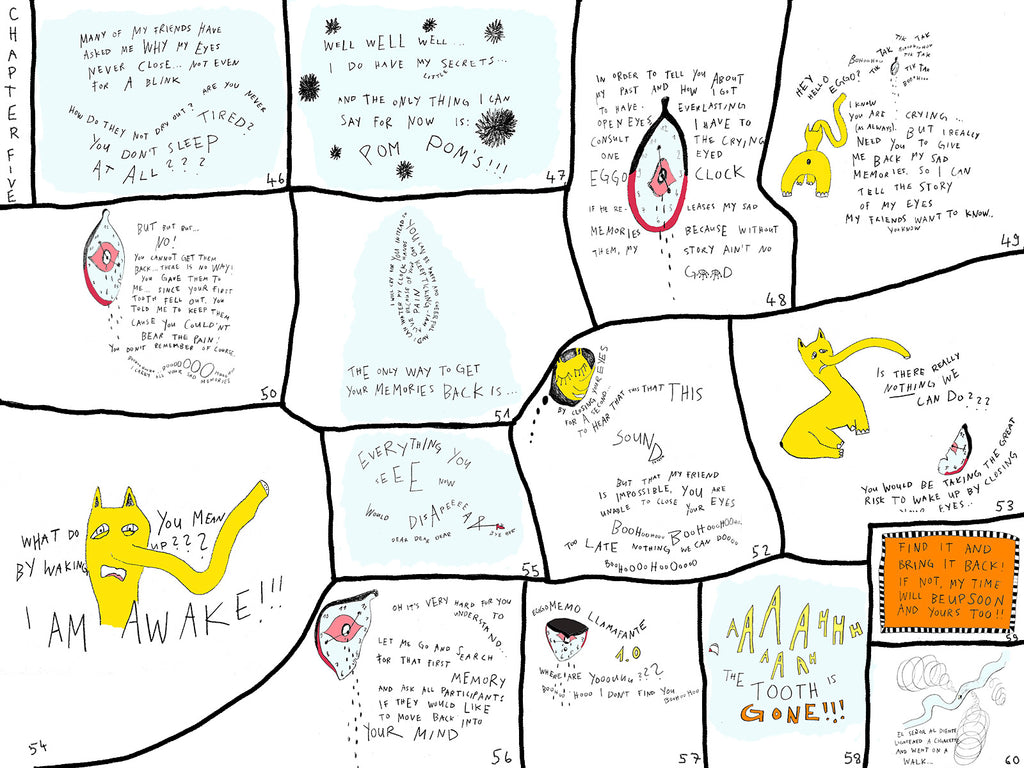 CHAPTER FIVE
MANY OF MY FRIENDS HAVE
ASKED ME WHY MY EYES
NEVER CLOSE... NOT EVEN
FOR A BLINK
HOW DO THEY NOT DRY OUT?
ARE YOU NEVER
TIRED?
YOU DON'T SLEEP
AT ALL???
46
WELL WELL WELL...
I DO HAVE MY SECRETS...
LITTLE
AND THE ONLY THING I CAN
SAY FOR NOW IS:
POM POM'S!!!
47
IN ORDER TO TELL YOU ABOUT
MY PAST AND HOW I GOT
TO HAVE EVERLASTING
OPEN EYES I HAVE TO
CONSULT THE CRYING
ONE EYED
EGGO CLOCK
IF HE RE- LEASES MY SAD
MEMORIES BECAUSE WITHOUT
THEM, MY STORY AIN'T NO
GOOD
48
TIK TAK
BOOHOOHOO
TIK TAK
TIK TAK
BOOHOO
BOOHOOHOO
TIK TAK
HEY
HELLO
EGGO?
I KNOW
YOU ARE CRYING...
(AS ALWAYS). BUT I REALLY
NEED YOU TO GIVE
ME BACK MY SAD
MEMORIES. SO I CAN
TELL THE STORY
OF MY EYES
MY FRIENDS WANT TO KNOW..
YOU KNOW
49
BUT BUT BUT...
NO!
YOU CANNOT GET THEM
BACK... THERE IS NO WAY!
YOU GAVE THEM TO
ME... SINCE YOUR FIRST
TOOTH FELL OUT. YOU
TOLD ME TO KEEP THEM
CAUSE YOU COULDN'T
BEAR THE PAIN!
YOU DON'T REMEMBER OF COURSE.
I CARRY ALL YOUR SAD MEMORIES
50
THE ONLY WAY TO GET
YOUR MEMORIES BACK IS...
51
BY CLOSING YOUR EYES
FOR A SECOND..
TO HEAR THAT THIS THAT THIS
SOUND
BUT THAT MY FRIEND
IS IMPOSSIBLE, YOU ARE
UNABLE TO CLOSE YOUR EYES
BOOHOOHOOO BOOHOOOHOOOO
TOO LATE NOTHING WE CAN DOOOO
BOOHOOOOHOOOOOO
52
IS THERE REALLY
NOTHING WE
CAN DO???
YOU WOULD BE TAKING THE GREAT
RISK TO WAKE UP BY CLOSING
YOUR EYES..
53
WHAT DO YOU MEAN
BY WAKING UP???
I AM AWAKE!!!
54
EVERYTHING YOU
SEEE NOW
WOULD DISAPEEEAR
DEAR DEAR DEAR BYE BYE
55
OH IT'S VERY HARD FOR YOU
TO UNDERSTAND...
LET ME GO AND SEARCH
FOR THAT FIRST
MEMORY
AND ASK ALL PARTICIPANTS
IF THEY WOULD LIKE
TO MOVE BACK INTO
YOUR MIND
56
EGGOMEMO LLAMAFANTE
1.0
WHERE ARE YOOUUU???
BOOHOO HOOO I DON'T FIND YOU BOOHOOHOO
57
AAAAHHH
AAAH
THE
TOOTH IS
GONE!!!
58
FIND IT AND
BRING IT BACK!
IF NOT, MY TIME
WILL BE UP SOON
AND YOURS TOO!!
59
EL SEÑOR AL DIENTE
LIGHTENED A CIGARETTE
AND WENT ON A
WALK...
60